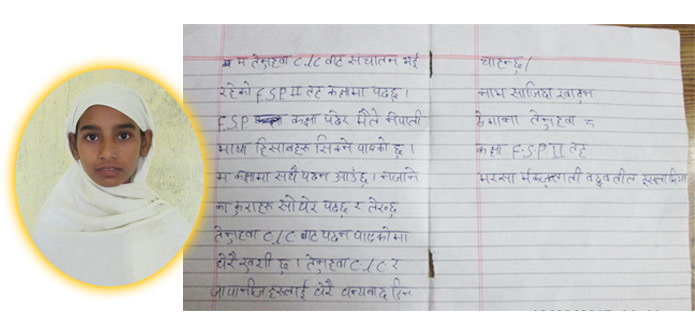 म तेनुहवा C.L.C बाट संचालन भई
रहेको F.S.P II तह कक्षामा पढ्छु ।
F.S.P कक्षा पढेर मैले नेपाली
भाषा हिसाबहरु सिक्ने पाएको छु ।
म कक्षामा सधै पढ्न आउँछु । नजाने
का कुराहरु सोधेर पढ्छु र
तेनुहवा C.L.C बाट पढ्न पाएकोमा
धेरै खुसी छु । तेनुहवा C.L.C र
धेरै धन्यवाद दिन
चाहन्छु ।
नाम साजिदा खातुन
ठेगाना तेनुहवा
कक्षा F.S.P II तह
मदरसा